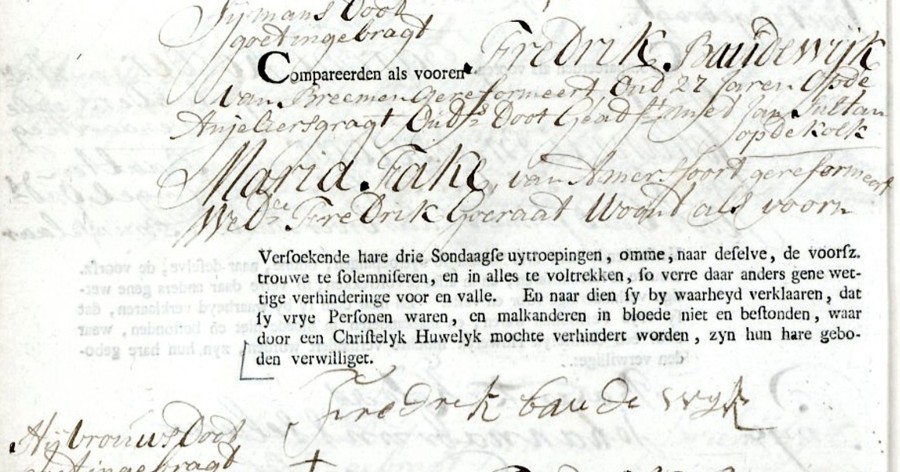 Sijmans Doot
goetingebragt
Compareerden als vooren Fredrik Baudewijk
van Breemen gereformeert Oud 27 Jaren Opde
Anjeliersgragt Ouds Doot Geads met Jan Sultan
op de kolk
Maria Fake, van Amersfoort gereformeert
Wede Fredrik Goeraat Woont als voorn
Versoekende hare drie Sondaagse uytroepingen, omme, naar deselve, de voorsz.
trouwe te solemniseren, en in alles te voltrekken, so verre daar anders gene wet-
tige verhinderinge voor en valle. En naar dien sy by waarheyd verklaaren, dat
sy vrye Personen waren, en malkanderen in bloede niet en bestonden, waar
door een Christelyk Huwelyk mochte verhindert worden, zyn hun hare gebo-
den verwilliget.
Fredrek baude wyk
Wijbrouws Doot
goetingebragt